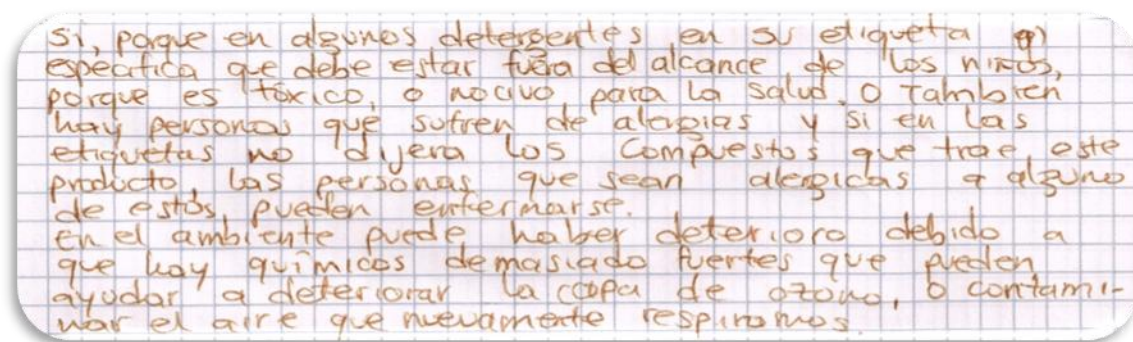 Si, porque en algunos detergentes en su etiqueta
especifica que debe estar fuera del alcance de los niños,
porque es tóxico, o nocivo para la salud. O También
hay personas que sufren de alergias y si en las
etiquetas no dijera los compuestos que trae este
producto, las personas que sean alergicas a alguno
de estos, pueden enfermarse.
En el ambiente puede haber deterioro debido a
que hay químicos demasiado fuertes que pueden
ayudar a deteriorar la capa de ozono, o contami-
nar el aire que nuevamente respiramos.